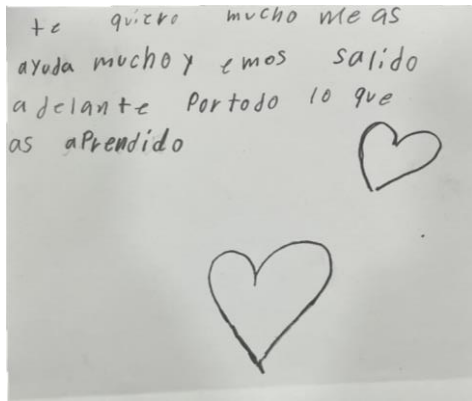 te quiero mucho me as
ayuda mucho y emos salido
adelante por todo lo que
as aprendido